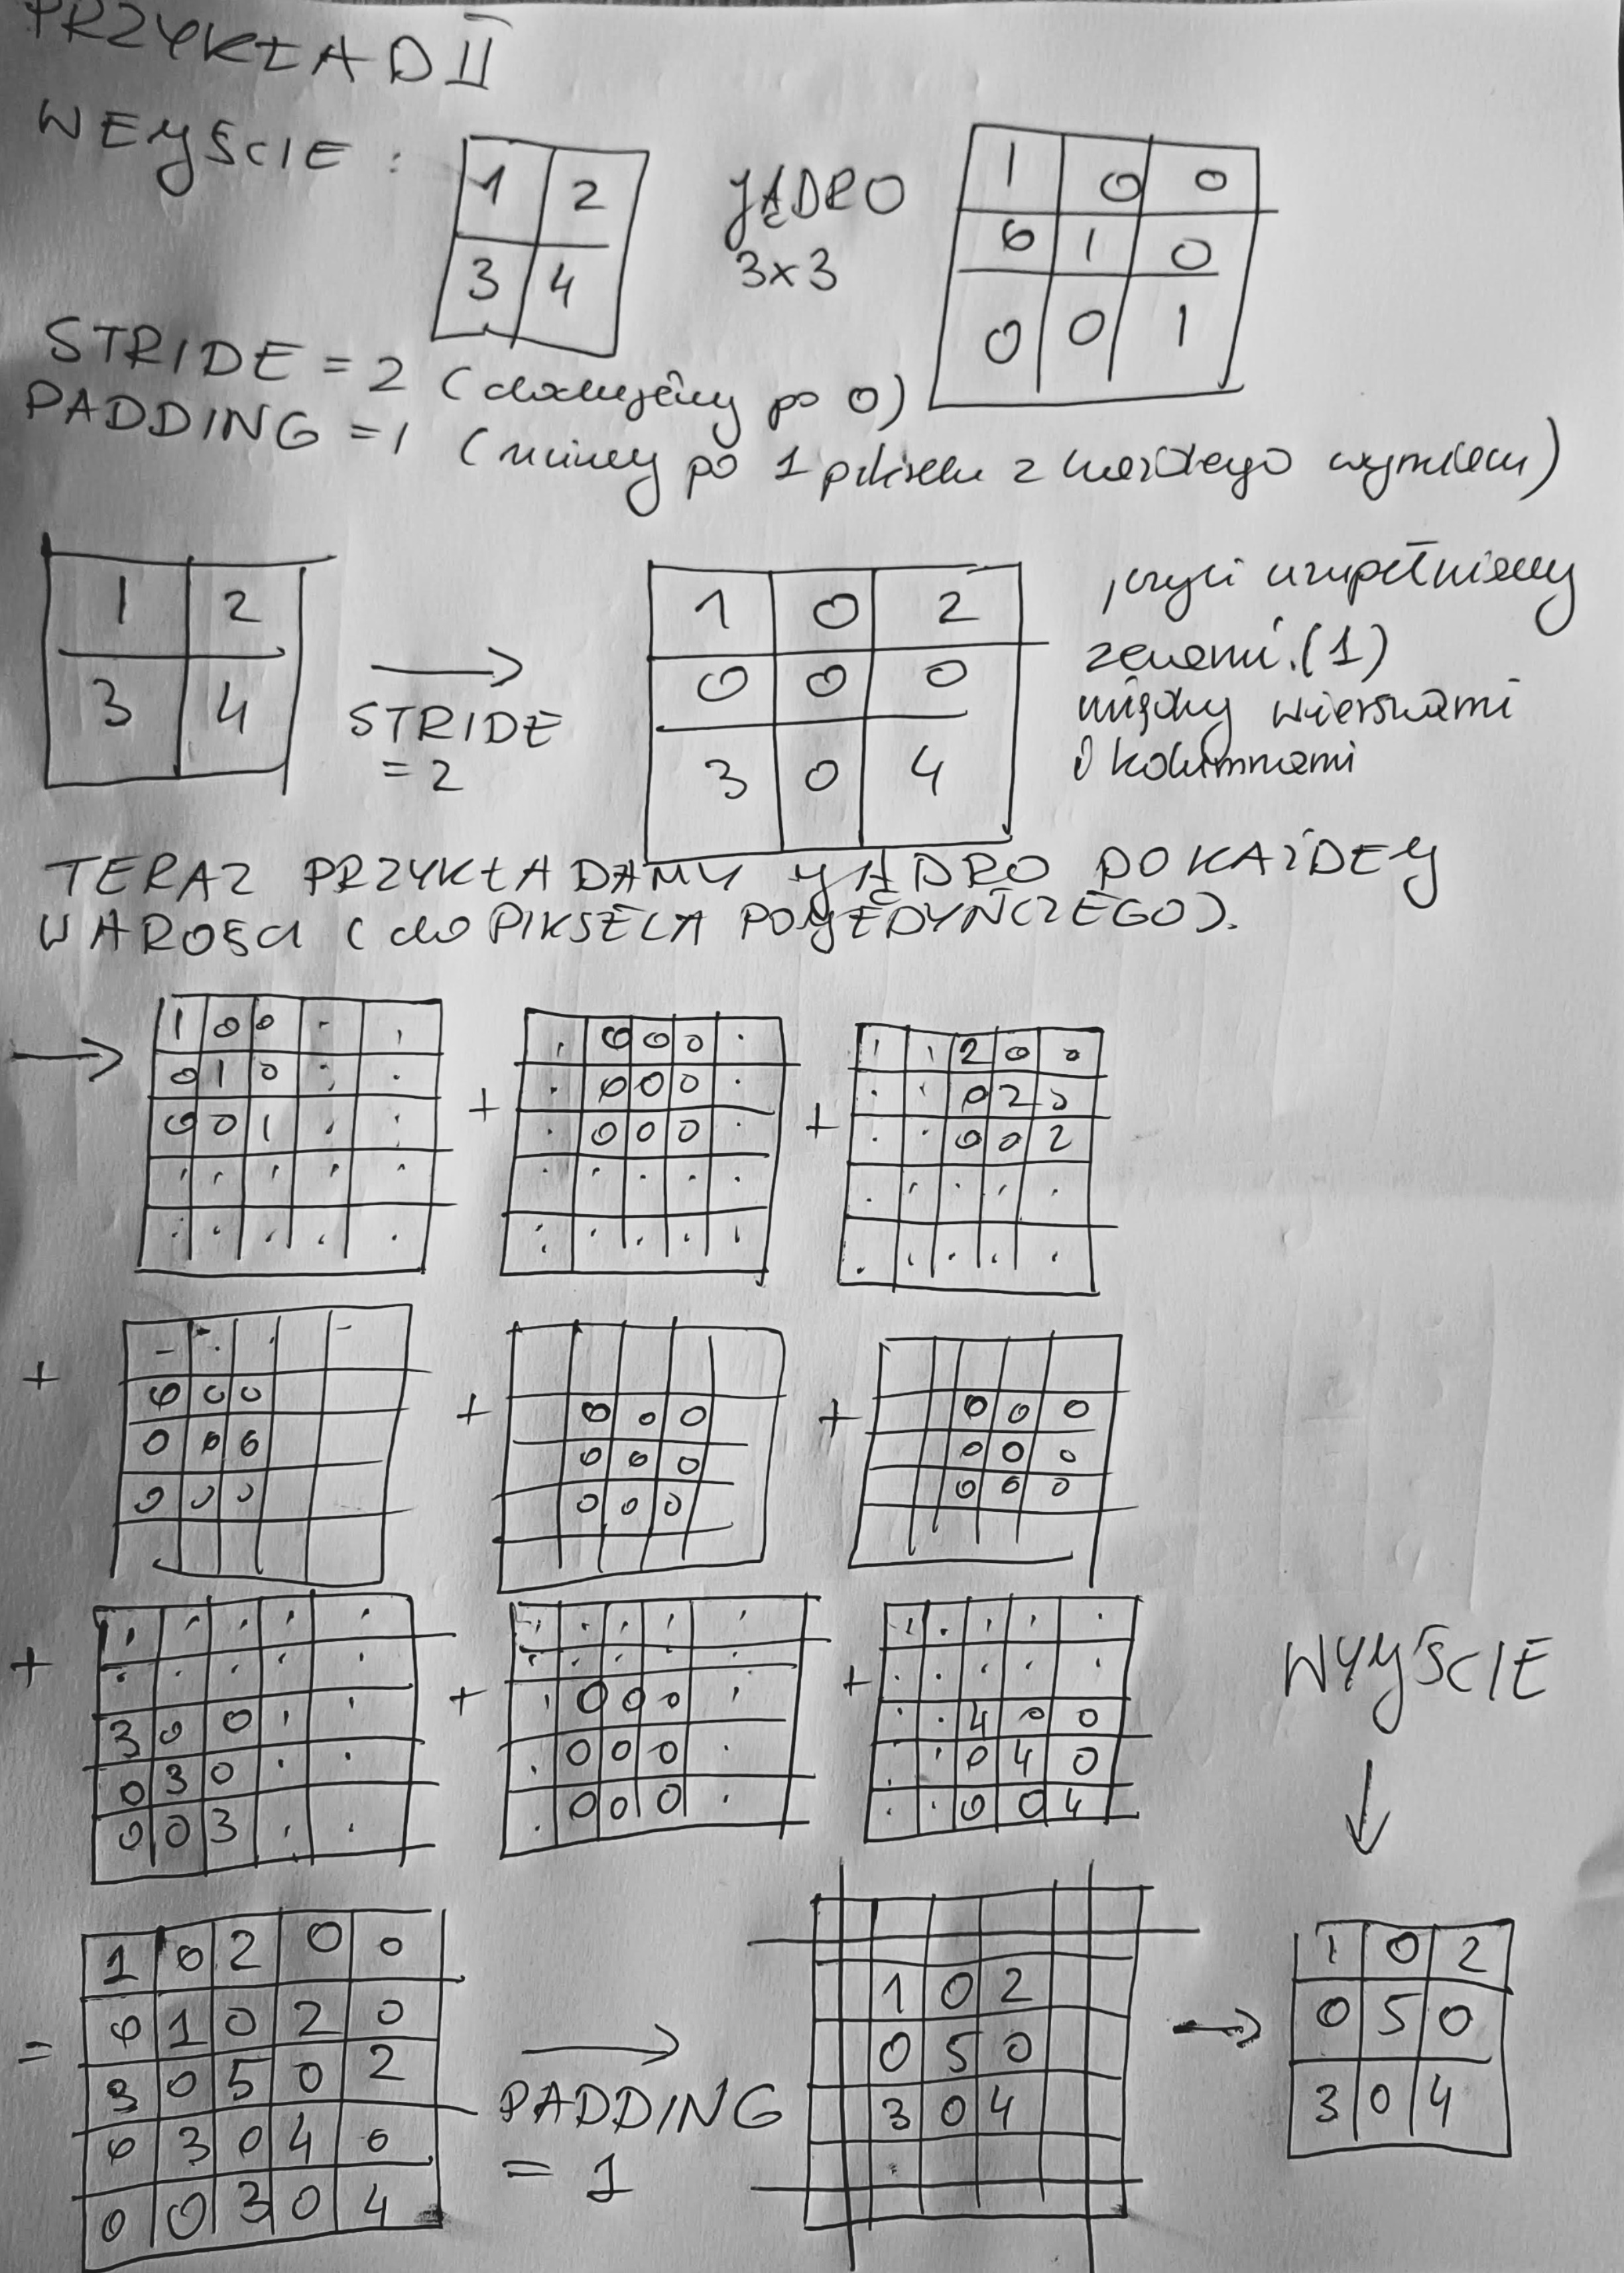 PRZYKŁAD II
WEJŚCIE :
1 2
3 4
JĄDRO
3x3
1 0 0
0 1 0
0 0 1
STRIDE = 2 (dodajemy po 0)
PADDING = 1 (tniemy po 1 pikselu z każdego wymiaru)
1 2
3 4
STRIDE
= 2
1 0 2
0 0 0
3 0 4
, czyli uzupełniamy
zerami (1)
między wierszami
i kolumnami
TERAZ PRZYKŁADAMY JĄDRO DO KAŻDEJ
WAROŚCI (do PIKSELA POJEDYŃCZEGO).
1 0 0 . .
0 1 0 . .
0 0 1 . .
. . . . .
. . . . .
+
. 0 0 0 .
. 0 0 0 .
. 0 0 0 .
. . . . .
. . . . .
+
. . 2 0 0
. . 0 2 0
. . 0 0 2
. . . . .
. . . . .
+
0 0 0
0 0 0
0 0 0
+
0 0 0
0 0 0
0 0 0
+
0 0 0
0 0 0
0 0 0
+
. . . . .
. . . . .
3 0 0 . .
0 3 0 . .
0 0 3 . .
+
. . . . .
. . . . .
. 0 0 0 .
. 0 0 0 .
. 0 0 0 .
+
. . . . .
. . . . .
. . 4 0 0
. . 0 4 0
. . 0 0 4
WYJŚCIE
=
1 0 2 0 0
0 1 0 2 0
3 0 5 0 2
0 3 0 4 0
0 0 3 0 4
PADDING
= 1
1 0 2
0 5 0
3 0 4
1 0 2
0 5 0
3 0 4